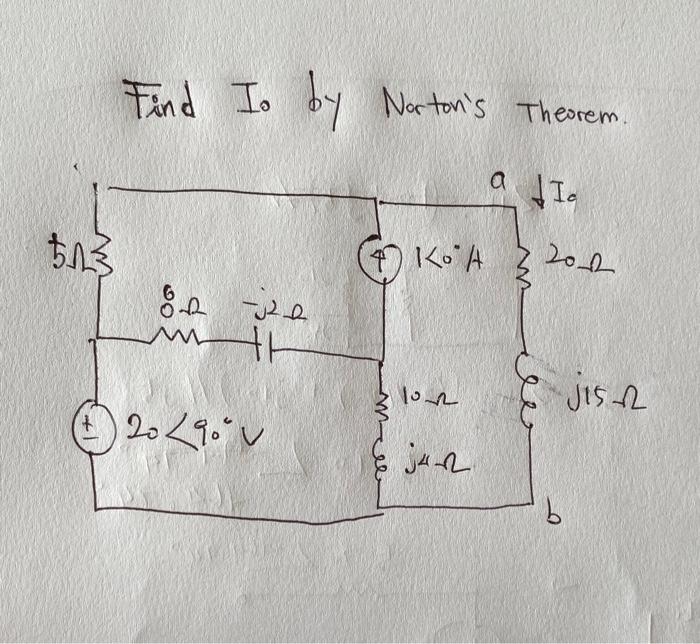 Find Io by Norton's Theorem.
a ↓Io
5Ω
1<0° A
20Ω
-j2Ω
10Ω
j15Ω
+
-
20<90° V
j4Ω
b